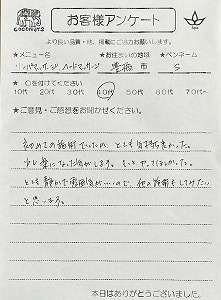 COCONUTS
お客様アンケート
Spa
より良い品質・他、掲載にご協力お願いします。
★メニュー名 ★お住まいの地域 ★ペンネーム
リンパマッサージ、ハードマッサージ 豊橋市 S
★ ○を付けてください
10代 20代 30代 40代 50代 60代 70代~
★ご意見・ご感想をお聞かせください。
初めての施術でしたが、とても気持ち良かった。
少し楽になった気がします。もっとやってほしかった。
とても静かな雰囲気が…ので、他の施術もしてみたい
と思います。
本日はありがとうございました。